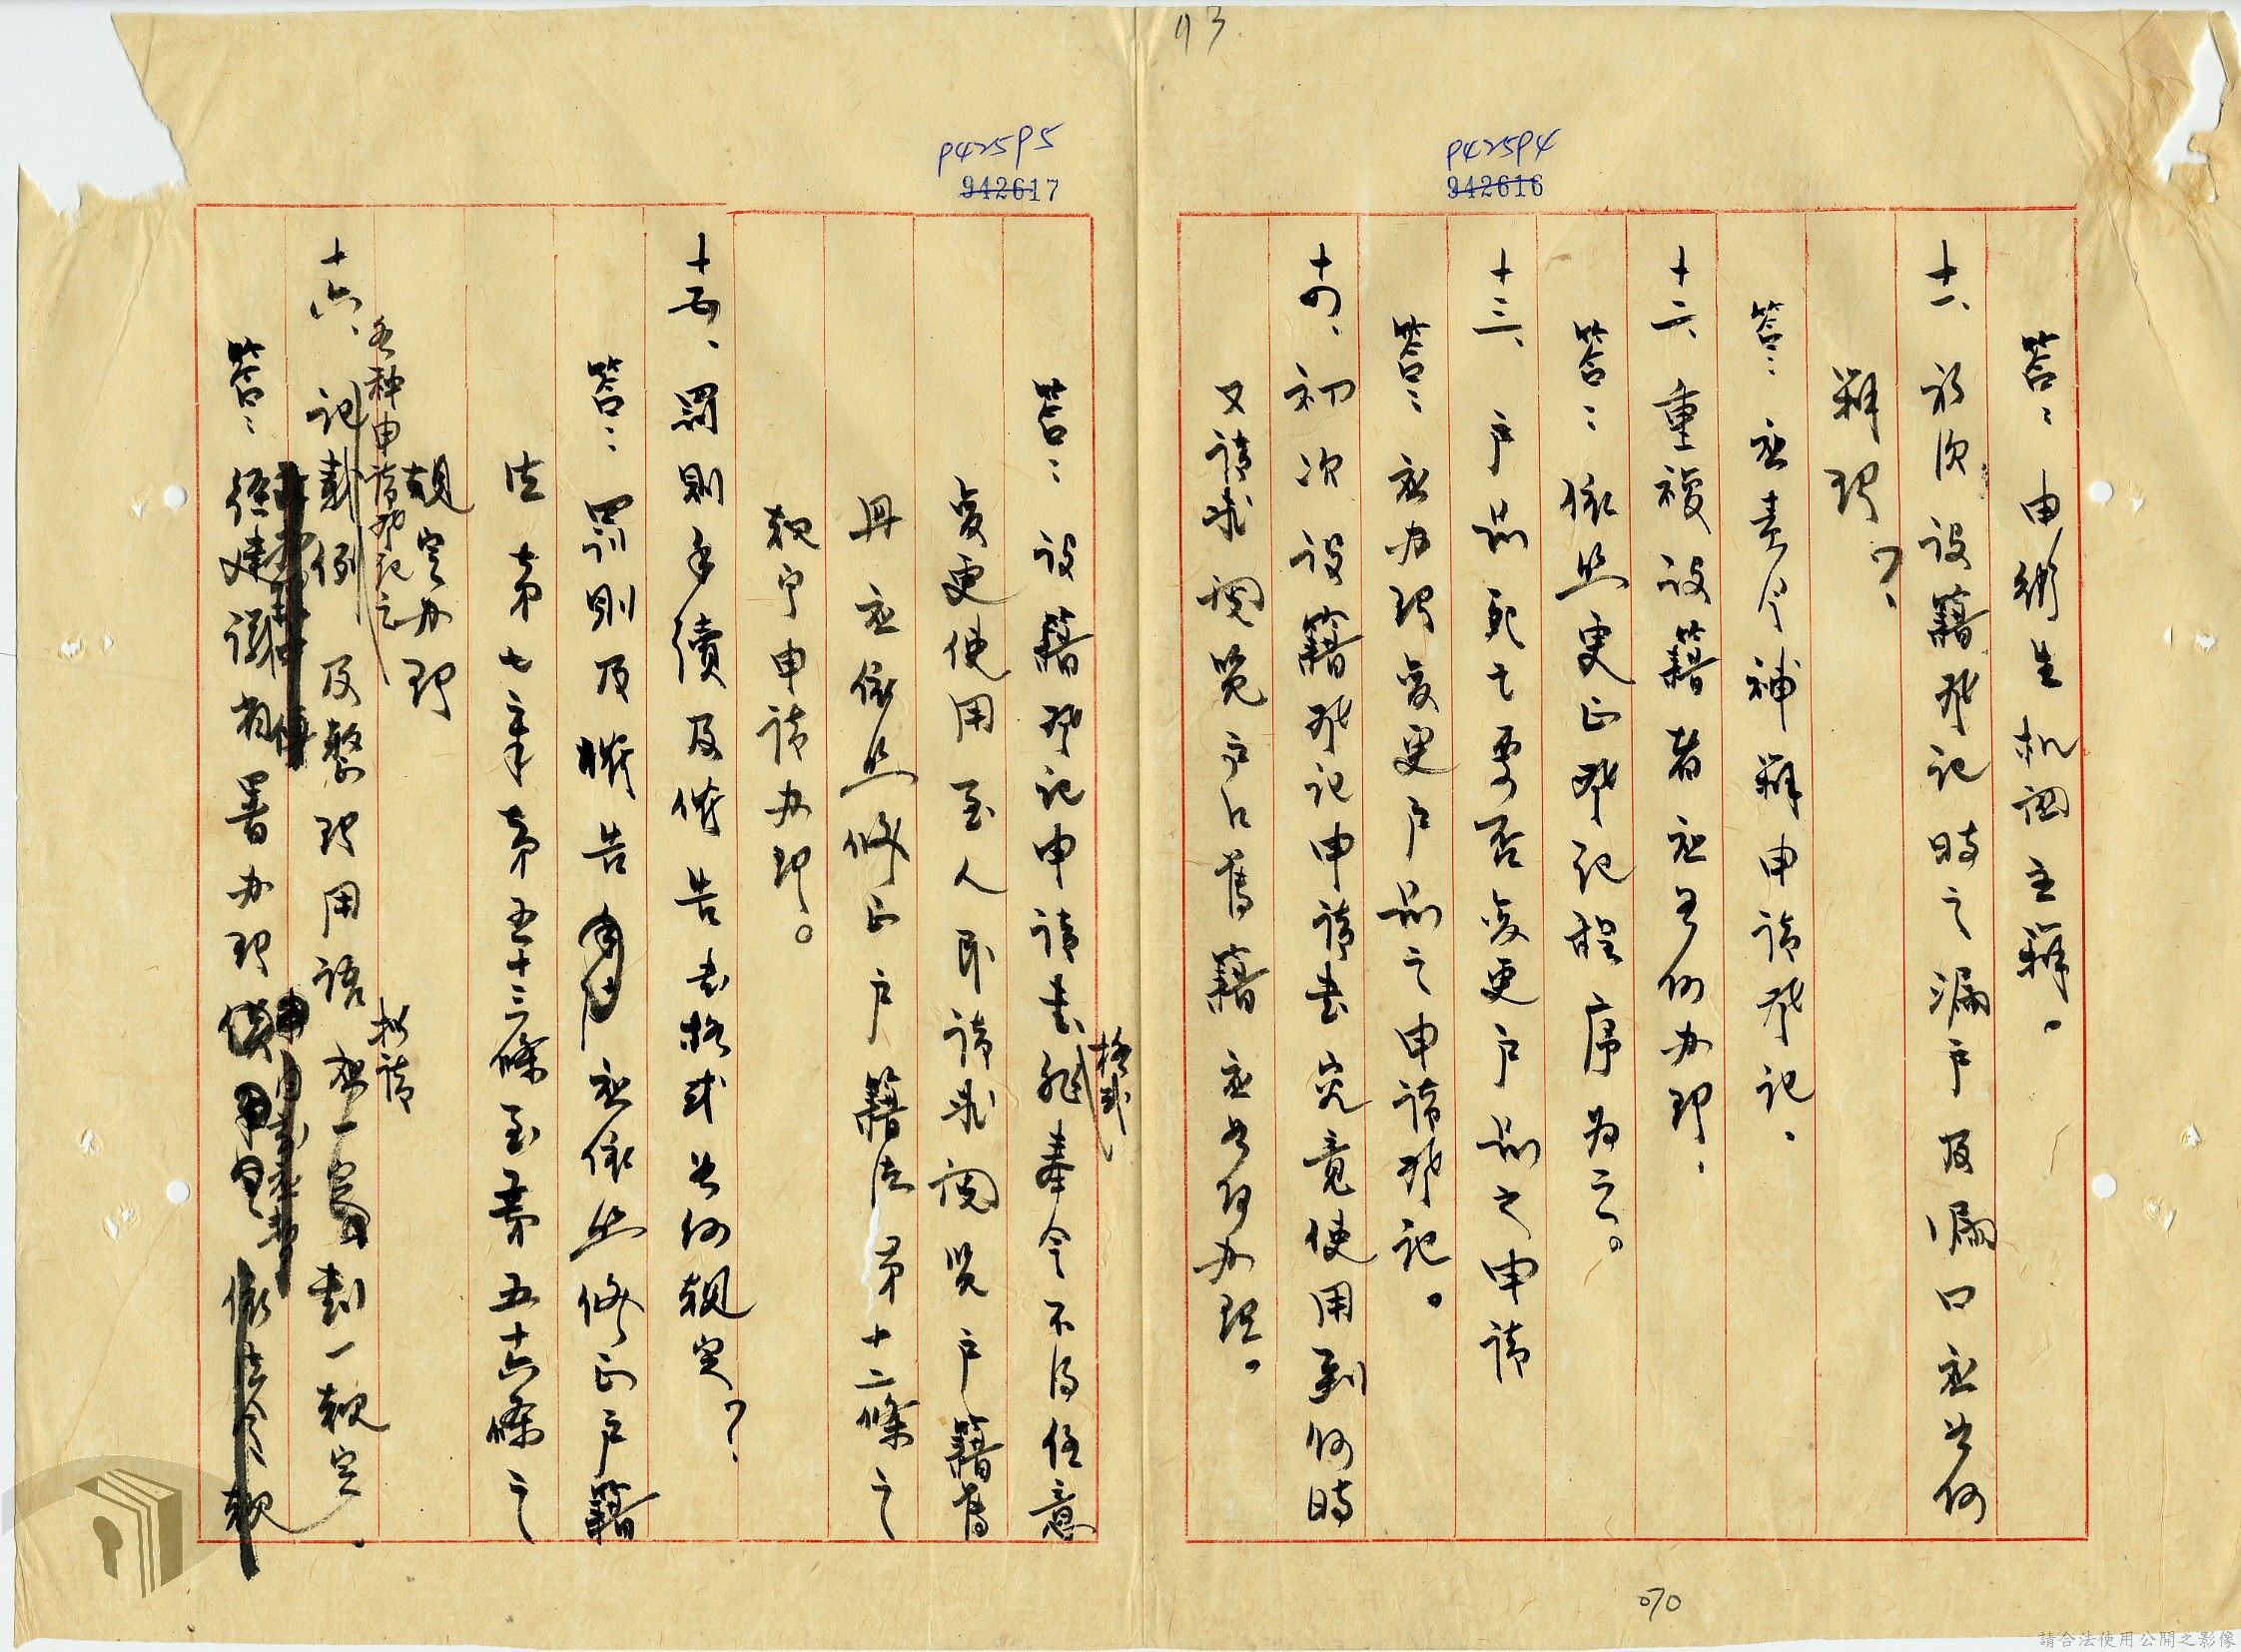 93
P425P4
942616
答：由衛生机関主辦。
十一、初次設籍登記時之漏戶及漏口应如何
辦理？
答：应責令補辦申請登記。
十二、重複設籍者应如何办理。
答：依照更正登記程序为之。
十三、戶長死亡要否変更戶長之申請
答：应办理変更戶長之申請登記。
十四、初次設籍登記申請書究竟使用到何時
又請求閱覽戶口舊籍应如何办理。
070
P425P5
942617
答：設籍登記申請書格式奉令不得任意
変更使用至人民請求閱览戶籍舊
冊应依照修正戶籍法第十二條之
規定申請办理。
十五、罰則手續及催告書格式如何規定？
答：罰則及催告应依照修正戶籍
法第七章第五十三條至第五十六條之
規定办理
十六、各种申請登記之記載例及整理用語拟請劃一規定。
答：經建議省署办理
請合法使用公開之影像